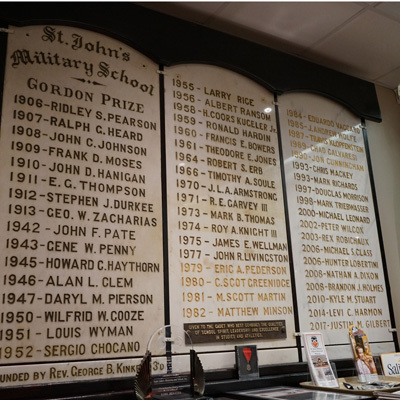 St. John's
Military School
GORDON PRIZE
1906-RIDLEY S. PEARSON
1907-RALPH G. HEARD
1908-JOHN C. JOHNSON
1909-FRANK D. MOSES
1910-JOHN D. HANIGAN
1911-E. G. THOMPSON
1912-STEPHEN J. DURKEE
1913-GEO. W. ZACHARIAS
1942-JOHN F. PATE
1943-GENE W. PENNY
1945-HOWARD C. HAYTHORN
1946-ALAN L. CLEM
1947-DARYL M. PIERSON
1950-WILFRID W. COOZE
1951-LOUIS WYMAN
1952-SERGIO CHOCANO
FOUNDED BY REV. GEORGE B. KINKEAD
1955-LARRY RICE
1956-ALBERT RANSOM
1958-H. COORS KUGELER Jr.
1959-RONALD HARDIN
1960-FRANCIS E. BOWERS
1961-THEODORE E. JONES
1964-ROBERT S. ERB
1966-TIMOTHY A. SOULE
1970-J. L. A. ARMSTRONG
1971-R. E. GARVEY III
1973-MARK B. THOMAS
1974-ROY A. KNIGHT III
1975-JAMES E. WELLMAN
1977-JOHN R. LIVINGSTON
1979-ERIC A. PEDERSON
1980-C. SCOT GREENIDGE
1981-M. SCOTT MARTIN
1982-MATTHEW MINSON
GIVEN TO THE CADET WHO BEST COMBINES THE QUALITIES
OF SCHOOL SPIRIT, LEADERSHIP AND EXCELLENCE
IN STUDIES AND ATHLETICS
1984-EDUARDO
1985-J. ANDREW WOLFE
1987-TRAVIS KLOPFENSTEIN
1989-CHAD CALVARESI
1990-JON CUNNINGHAM
1993-CHRIS MACKEY
1993-MARK RICHARDS
1997-DOUGLAS MORRISON
1998-MARK TRIEBWASSER
2000-MICHAEL LEONARD
2002-PETER WILCOX
2003-REX ROBICHAUX
2006-MICHAEL S. CLASS
2006-HUNTER LOBERTINI
2008-NATHAN A. DIXON
2008-BRANDON J. HOLMES
2010-KYLE M. STUART
2014-LEVI C. HARMON
2017-JUSTIN M. GILBERT